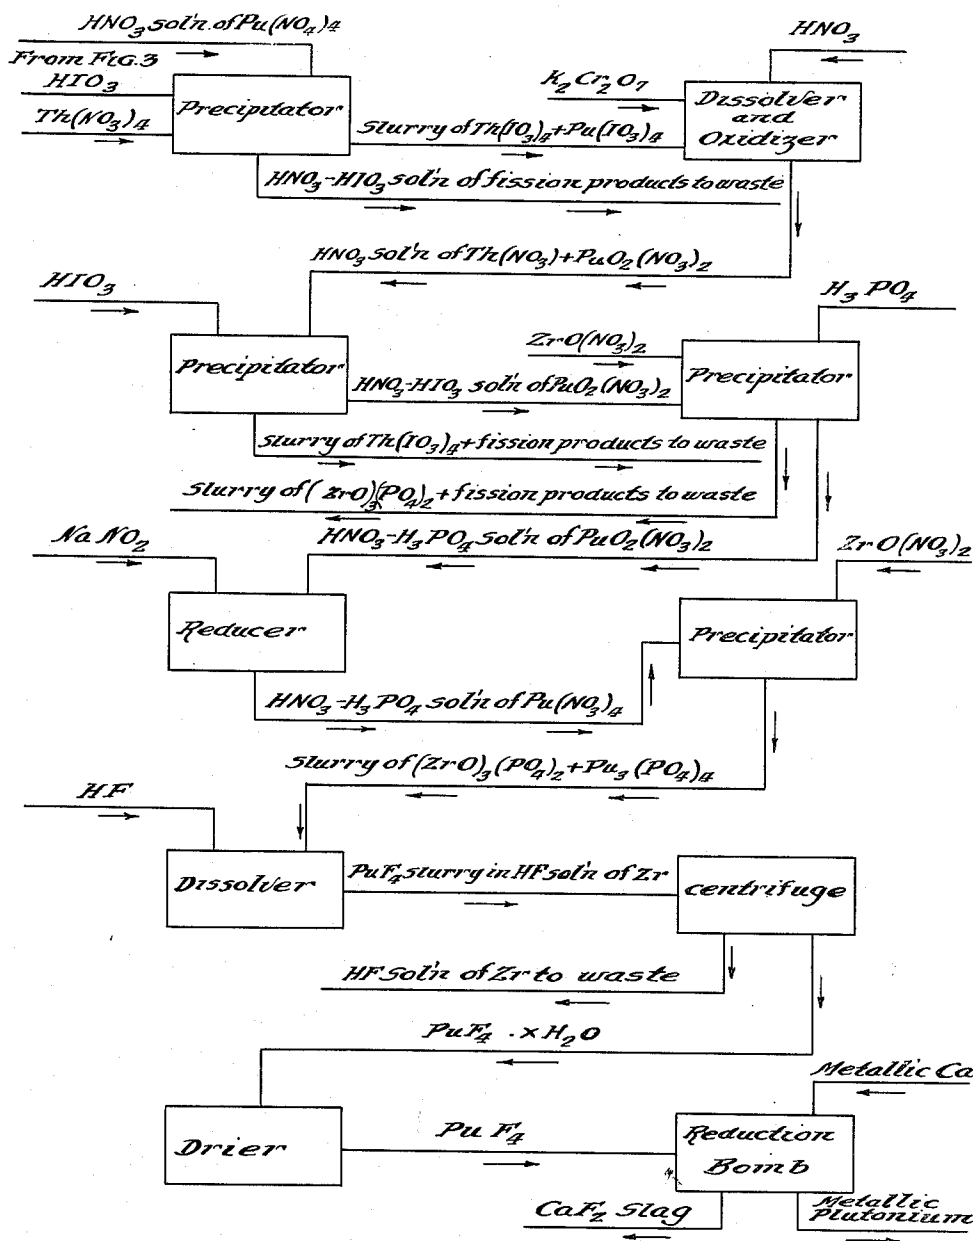 HNO3 sol'n. of Pu(NO4)4
From FIG. 3
HNO3
HIO3
Th(NO3)4
Precipitator
K2Cr2O7
Dissolver
and
Oxidizer
Slurry of Th(IO3)4+Pu(IO3)4
HNO3-HIO3 sol'n of fission products to waste
HNO3 sol'n of Th(NO3)+PuO2(NO3)2
HIO3
H3PO4
Precipitator
ZrO(NO3)2
Precipitator
HNO3-HIO3 sol'n of PuO2(NO3)2
Slurry of Th(IO3)4+fission products to waste
Slurry of (ZrO)3(PO4)2+fission products to waste
NaNO2
HNO3-H3PO4 sol'n of PuO2(NO3)2
ZrO(NO3)2
Reducer
Precipitator
HNO3-H3PO4 sol'n of Pu(NO3)4
Slurry of (ZrO)3(PO4)2+Pu3(PO4)4
HF
Dissolver
PuF4 slurry in HF sol'n of Zr
centrifuge
HF sol'n of Zr to waste
PuF4 .xH2O
Metallic Ca
Drier
PuF4
Reduction
Bomb
CaF2 Slag
Metallic
Plutonium